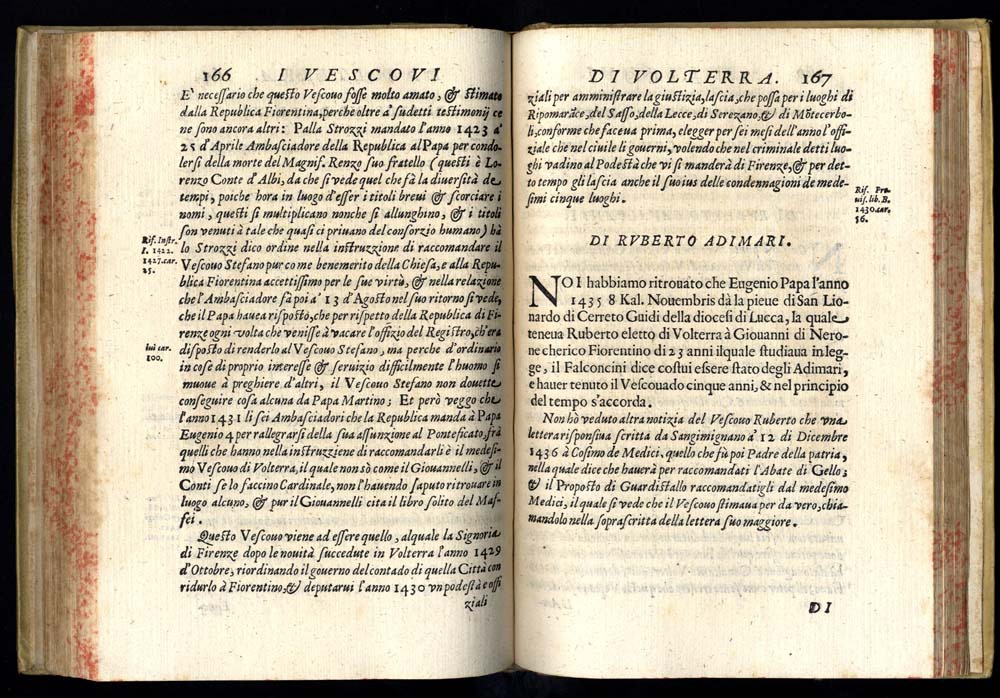 166 I VESCOVI
E' necessario che questo Vescouo fosse molto amato, & stimato
dalla Republica Fiorentina, perche oltre a' sudetti testimonij ce
ne sono ancora altri: Palla Strozzi mandato l'anno 1423 a'
25 d'Aprile Ambasciadore della Republica al Papa per condo-
lersi della morte del Magnif. Renzo suo fratello (questi è Lo-
renzo Conte d'Albi, da che si vede quel che fà la diuersità de
tempi, poiche hora in luogo d'esser i titoli breui & scorciare i
nomi, questi si multiplicano nonche si allunghino, & i titoli
son venuti à tale che quasi ci priuano del consorzio humano) hà
lo Strozzi dico ordine nella instruzzione di raccomandare il
Vescouo Stefano pur come benemerito della Chiesa, e alla Repu-
blica Fiorentina accettissimo per le sue virtù, & nella relazione
che l'Ambasciadore fà poi a' 13 d'Agosto nel suo ritorno si vede,
che il Papa hauea risposto, che per rispetto della Republica di Fi-
renze ogni volta che venisse à vacare l'offizio del Registro, ch'era
disposto di renderlo al Vescouo Stefano, ma perche d'ordinario
in cose di proprio interesse & seruizio difficilmente l'huomo si
muoue à preghiere d'altri, il Vescouo Stefano non douette
conseguire cosa alcuna da Papa Martino; Et però veggo che
l'anno 1431 li sei Ambasciadori che la Republica manda à Papa
Eugenio 4 per rallegrarsi della sua assunzione al Ponteficato, frà
quelli che hanno nella instruzziene di raccomandarli è il medesi-
mo Vescouo di Volterra, il quale non sò come il Giouannelli, & il
Conti se lo faccino Cardinale, non l'hauendo saputo ritrouare in
luogo alcuno, & pur il Giouannelli cita il libro solito del Maf-
fei.
Questo Vescouo viene ad essere quello, alquale la Signoria
di Firenze dopo le nouità succedute in Volterra l'anno 1429
d'Ottobre, riordinando il gouerno del contado di quella Città con
ridurlo à Fiorentino, & deputarui l'anno 1430 vn podestà e offi
ziali
Rif. Instr.
1. 1422.
1427. car.
25.
iui car.
100.
DI VOLTERRA. 167
ziali per amministrare la giustizia, lascia, che possa per i luoghi di
Ripomarãce, del Sasso, della Lecce, di Serezano, & di Mõtecerbo-
li, conforme che faceua prima, elegger per sei mesi dell'anno l'offi-
ziale che nel ciuile li gouerni, volendo che nel criminale detti luo-
ghi vadino al Podestà che vi si manderà di Firenze, & per det-
to tempo gli lascia anche il suo ius delle condennagioni de mede-
simi cinque luoghi.
Rif. Pro
uis. lib. B.
1430. car.
56.
DI RVBERTO ADIMARI.
NOI habbiamo ritrouato che Eugenio Papa l'anno
1435 8 Kal. Nouembris dà la pieue di San Lio-
nardo di Cerreto Guidi della diocesi di Lucca, la quale
teneua Ruberto eletto di Volterra à Giouanni di Nero-
ne cherico Fiorentino di 23 anni ilquale studiaua in leg-
ge, il Falconcini dice costui essere stato degli Adimari,
e hauer tenuto il Vescouado cinque anni, & nel principio
del tempo s'accorda.
Non hò veduto altra notizia del Vescouo Ruberto che vna
lettera risponsiua scritta da Sangimignano a' 12 di Dicembre
1436 à Cosimo de Medici, quello che fù poi Padre della patria,
nella quale dice che hauerà per raccomandati l'Abate di Gello;
& il Proposto di Guardistallo raccomandatigli dal medesimo
Medici, il quale si vede che il Vescouo stimaua per da vero, chia-
mandolo nella soprascritta della lettera suo maggiore.
DI